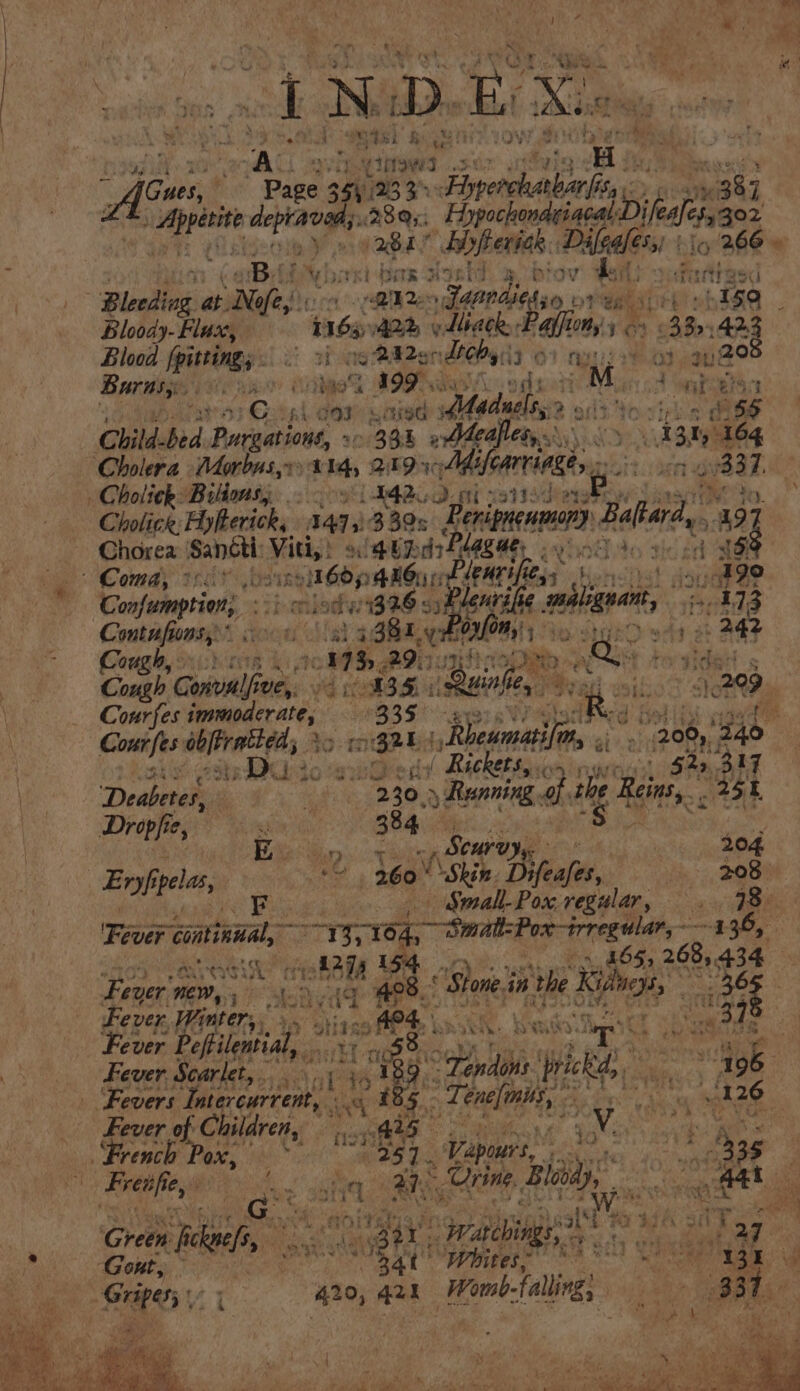 INDEX.
A
AGues, Page 35, 233
Appetite depraved, 280,
281
B
Bleeding at Nose, 212
Bloody-Flux, 163, 422
Blood spitting, 212
Burns, 199
C
Child-bed Purgations, 331
Cholera Morbus, 114, 219
Cholick Bilious, 142
Cholick Hysterick, 147, 330
Chorea Sancti Viti, 417
Coma, 160, 416
Consumption, 326
Contusions, 381
Cough, 173, 291
Cough Convulsive, 135
Courses immoderate, 335
Courses obstructed, 321
D
Deabetes, 230
Dropsie, 384
E
Erysipelas, 260
F
Fever continual, 13, 104,
127, 154
Fever new, 408
Fever Winter, 404
Fever Pestilential, 58
Fever Scarlet, 189
Fevers Intercurrent, 185
Fever of Children, 415
French Pox, 251
Frensie, 27
G
Green sickness, 321
Gout, 341
Gripes, 420, 421
H
Hypercatharsis, 387
Hypochondriacal Diseases, 302
Hysterick Diseases, 266
Jaundies, 159
Iliack Passion, 33, 423
Itch, 208
M
Madness, 56
Measles, 131, 164
Miscarriage, 337
P
Peripneumony Bastard, 197
Plague, 59
Pleurisies, 190
Pleurisie malignant, 173
Poyson, 242
Q
Quinsie, 209
R
Rheumatism, 200, 240
Rickets, 52, 317
Running of the Reins, 251
S
Scurvy, 204
Skin Diseases, 208
Small-Pox regular, 78
Small-Pox irregular, 136,
165, 268, 434
Stone in the Kidneys, 365
378
T
Tendons prick'd, 196
Tenesmus, 126
V
Vapours, 335
Urine Bloody, 441
W
Watchings, 27
Whites, 131
Womb-falling, 337